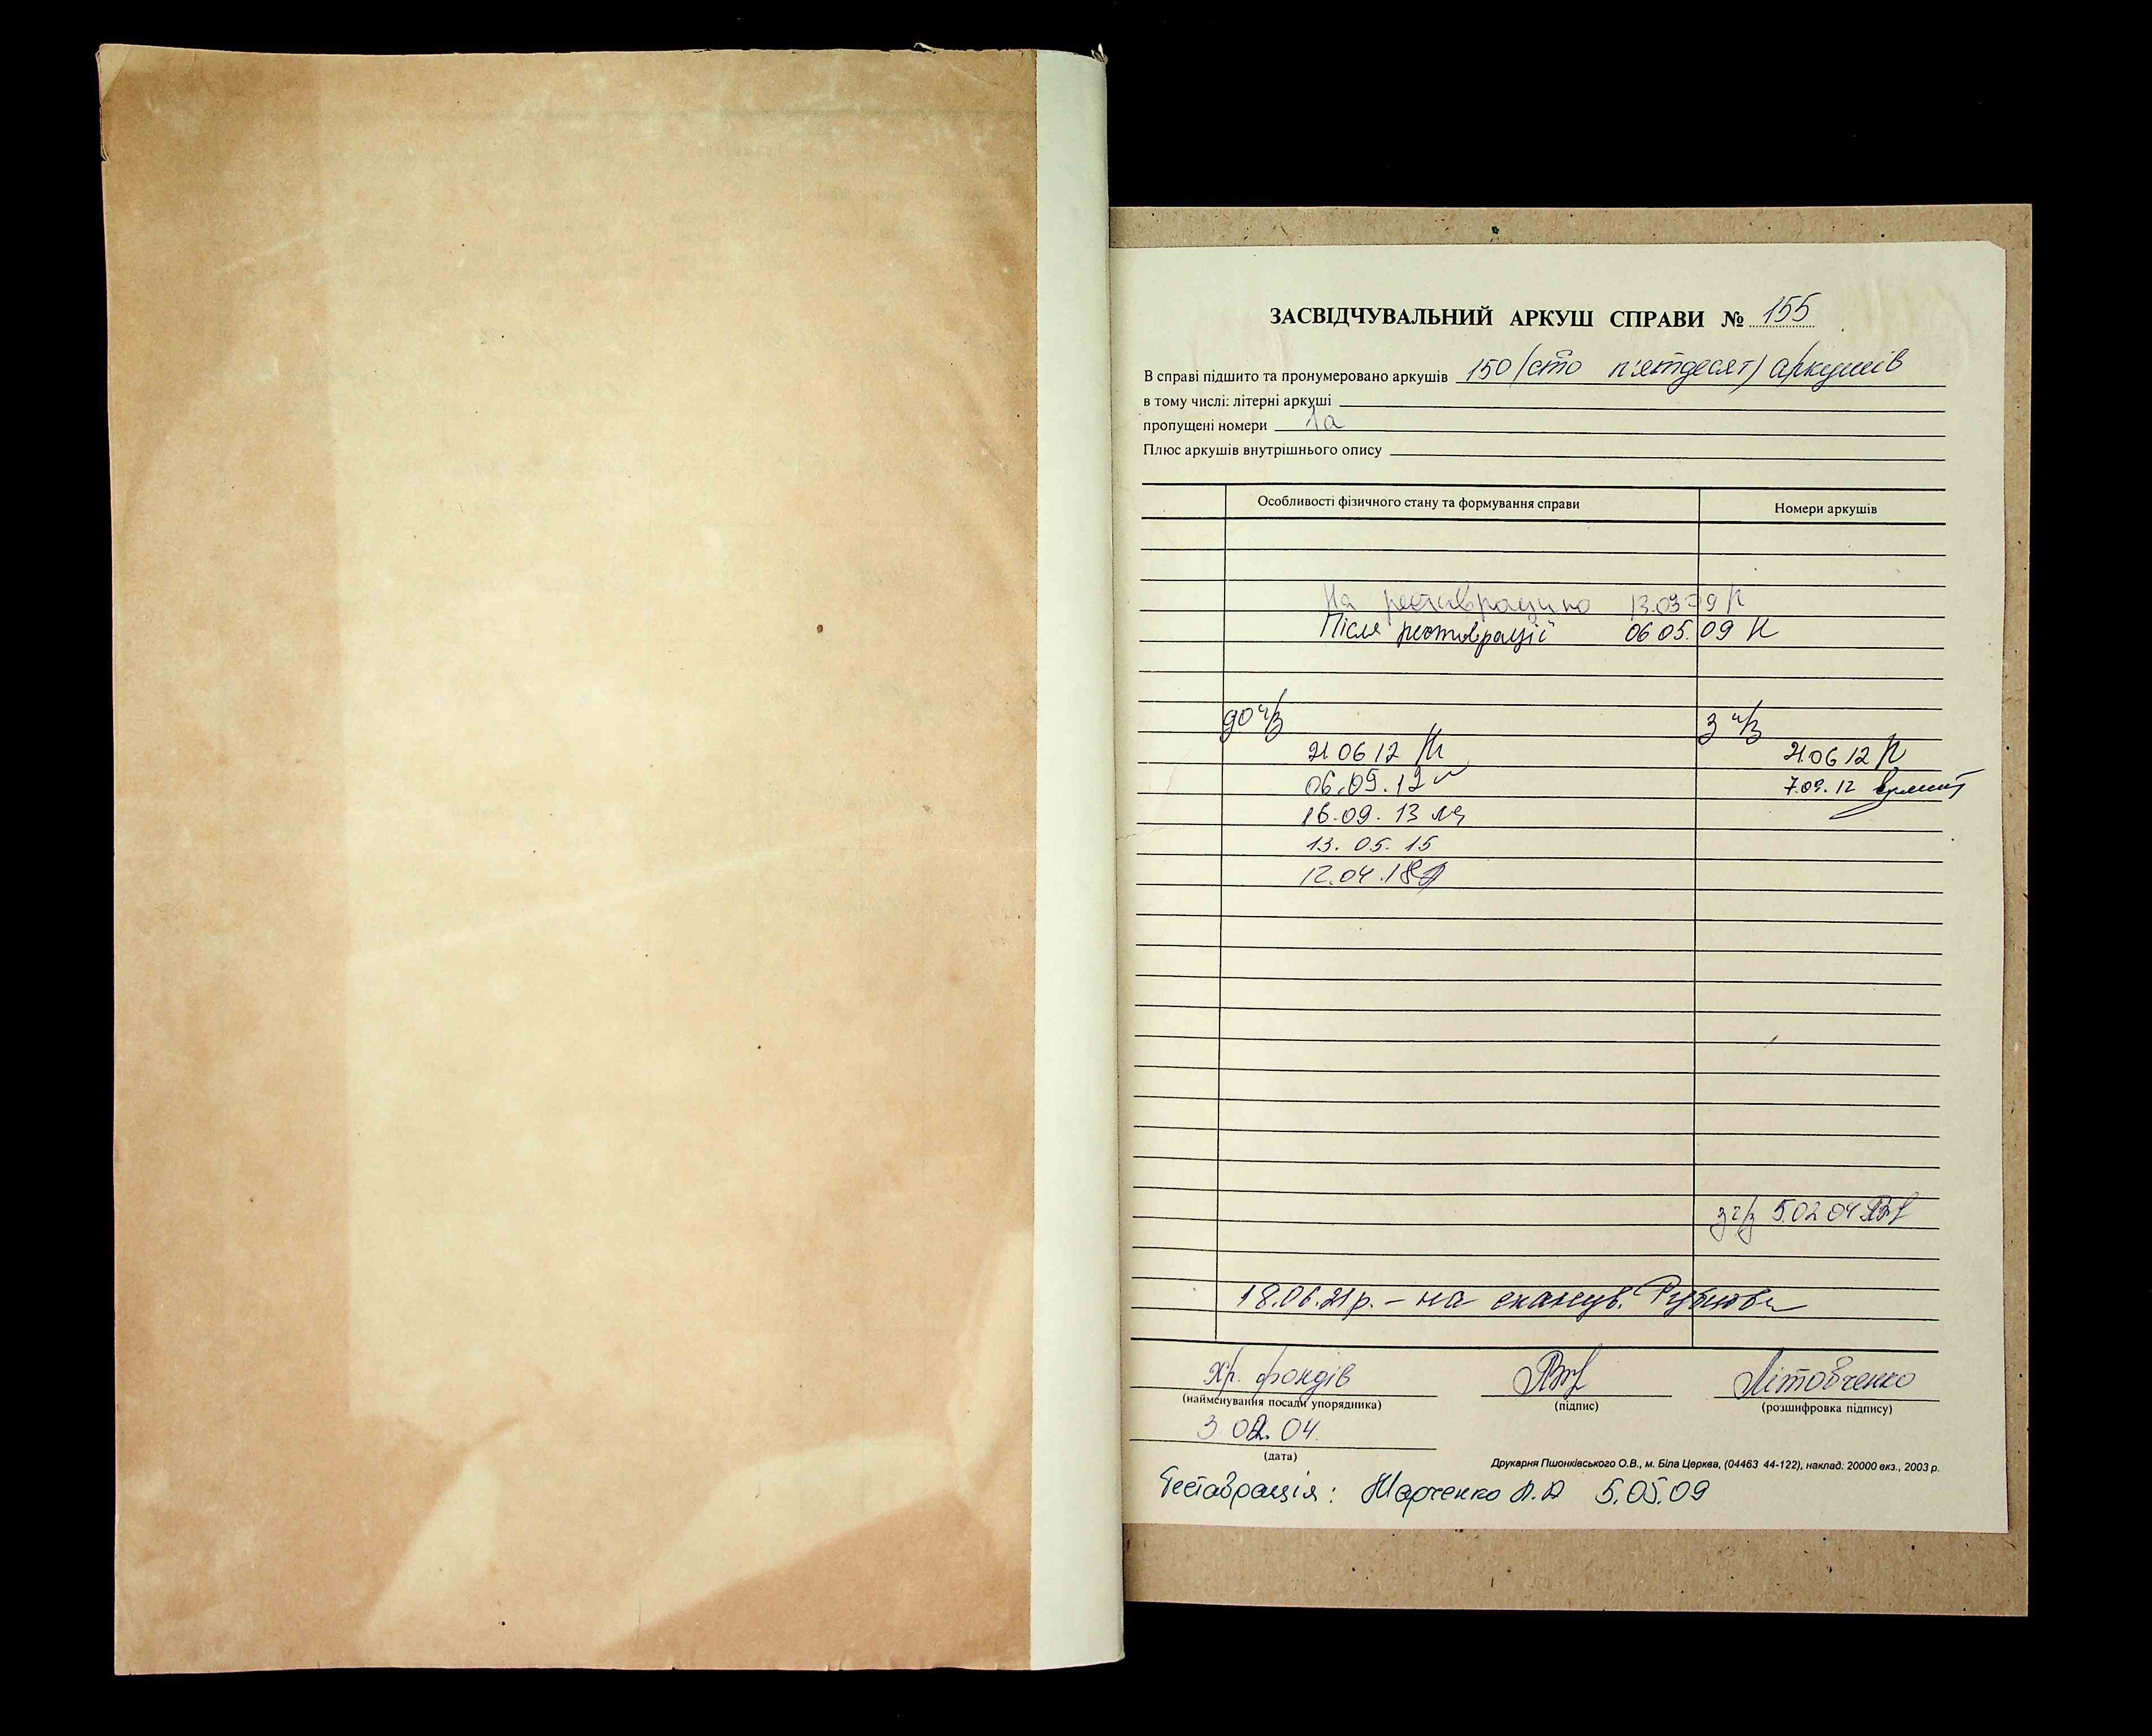 ЗАСВІДЧУВАЛЬНИЙ АРКУШ СПРАВИ № 155
В справі підшито та пронумеровано аркушів 150 (сто п'ятдесят) аркушів
в тому числі: літерні аркуші
пропущені номери 1а
Плюс аркушів внутрішнього опису
Особливості фізичного стану та формування справи Номери аркушів
На реставрацию 13.03.09
Після реставрації 06 05.09
до ч/з з ч/з
21 06 12 21.06 12
06.09.12 7.09.12
16.09.13
13.05.15
12.04.18
з ч/з 5.02 04
18.06.21р. – на сканув.
Хр. фондів Літовченко
(найменування посади упорядника) (підпис) (розшифровка підпису)
3 02. 04.
(дата)
Друкарня Пшонківського О.В., м. Біла Церква, (04463 44-122), наклад: 20000 екз., 2003 р.
Реставрація: Марченко 5.05.09